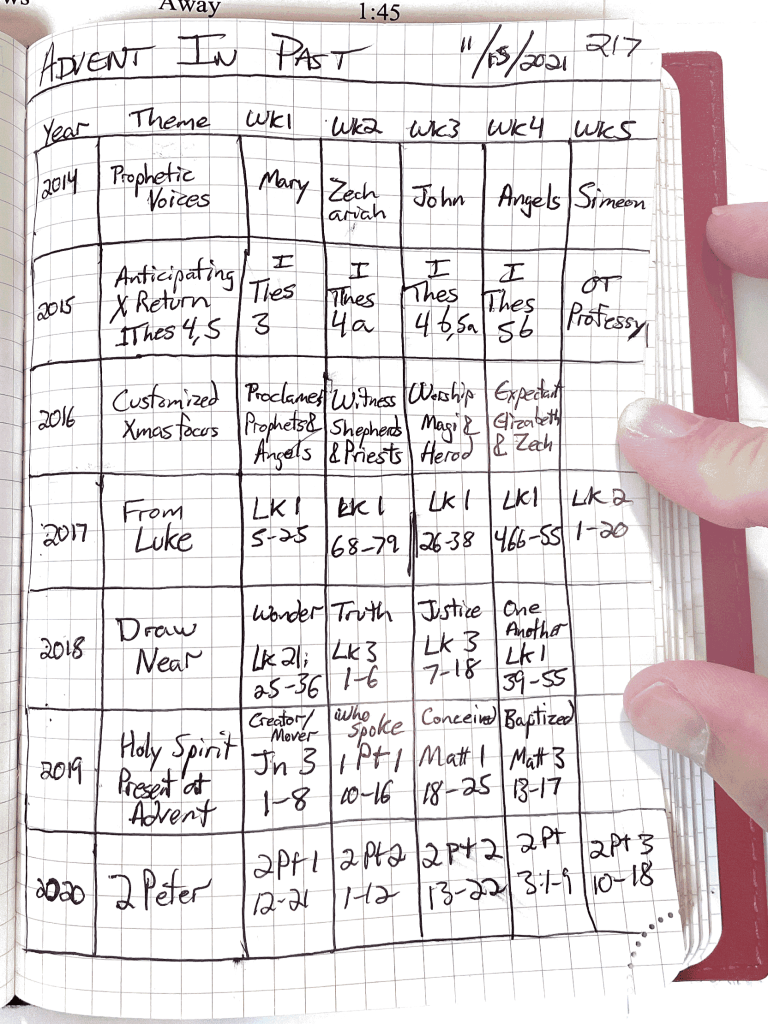 ws Away 1:45
ADVENT IN PAST 11/15/2021 217
Year Theme WK1 WK2 WK3 WK4 WK5
2014 Prophetic Voices Mary Zech ariah John Angels Simeon
2015 Anticipating X Return IThes 4,5 I Thes 3 I Thes 4a I Thes 4b,5a I Thes 5b OT Professy
2016 Customized Xmas focus Proclames Prophets & Angels Witness Shepherds & Priests Worship Magi & Herod Expectant Elizabeth & Zech
2017 From Luke LK 1 5-25 LK 1 68-79 LK 1 26-38 LK1 466-55 LK 2 1-20
2018 Draw Near Wonder LK 21; 25-36 Truth LK 3 1-6 Justice LK 3 7-18 One Another LK1 39-55
2019 Holy Spirit Present at Advent Creator/ Mover Jn 3 1-8 Who Spoke 1 Pt 1 10-16 Conceived Matt 1 18-25 Baptized Matt 3 13-17
2020 2 Peter 2Pt 1 12-21 2Pt2 1-12 2Pt 2 13-22 2Pt 3:1-9 2Pt 3 10-18